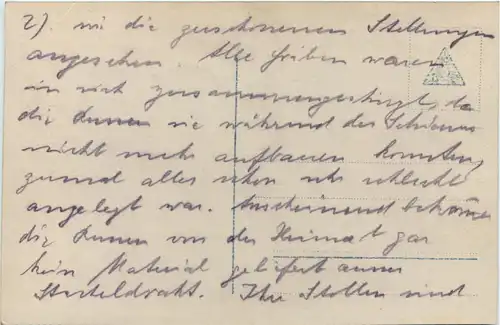 2). wie die zerschossenen Stellungen
angesehen. Alle Gräben waren
in sich zusammengestürzt, da
die Russen sie während des Schiessens
nicht mehr aufbauen konnten,
zumal alles schon sehr schlecht
angelegt war. Anscheinend bekommen
die Russen von der Heimat gar
kein Material geliefert ausser
Stacheldraht. Ihre Stollen sind